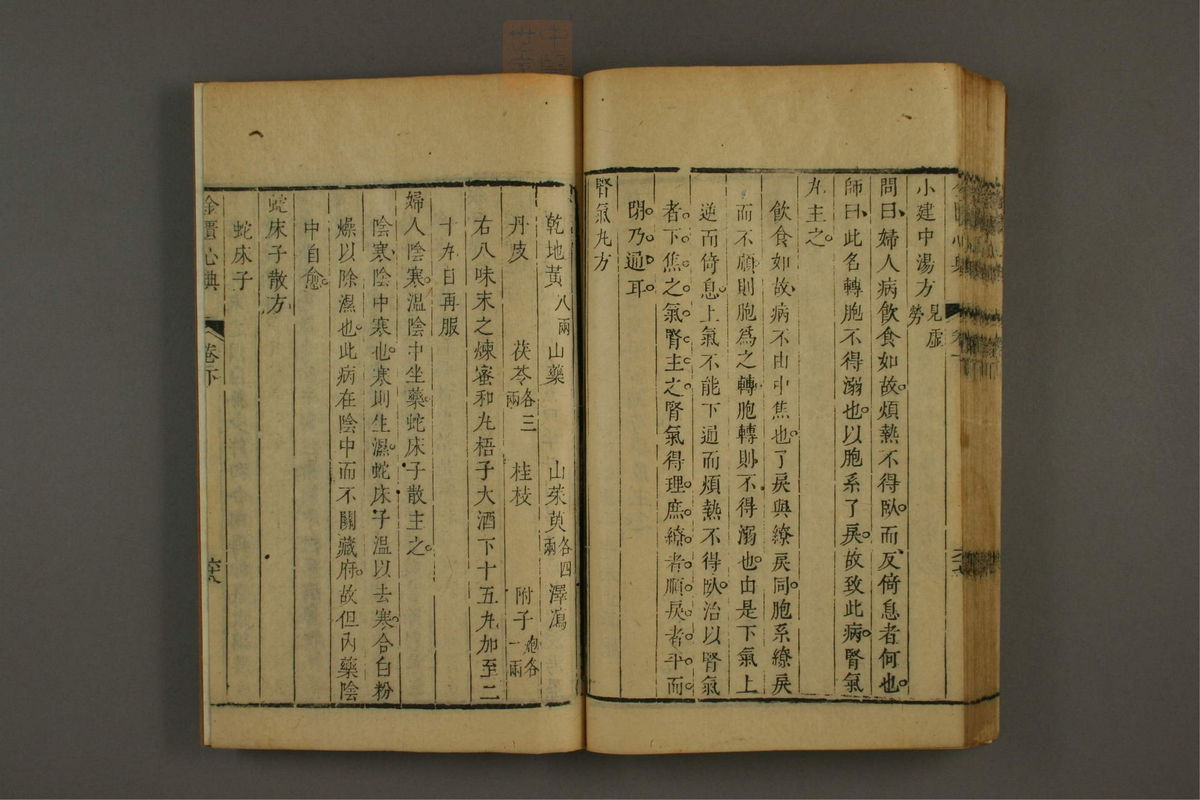 小建中湯方見虛勞
問曰婦人病飲食如故煩熱不得臥而反倚息者何也
師曰此名轉胞不得溺也以胞系了戾故致此病腎氣
丸主之
飲食如故病不由中焦也了戾與繚戾同胞系繚戾
而不順則胞爲之轉胞轉則不得溺也由是下氣上
逆而倚息上氣不能下通而煩熱不得臥治以腎氣
者下焦之氣腎主之腎氣得理庶繚者順戾者平而
閉乃通耳
腎氣丸方
乾地黃八兩 山藥 山茱萸各四兩 澤瀉
丹皮 茯苓各三兩 桂枝 附子炮各一兩
右八味末之煉蜜和丸梧子大酒下十五丸加至二
十丸日再服
婦人陰寒溫陰中坐藥蛇床子散主之
陰寒陰中寒也寒則生濕蛇床子溫以去寒合白粉
燥以除濕也此病在陰中而不關藏府故但內藥陰
中自愈
蛇床子散方
蛇床子
金匱心典 卷下 六十八